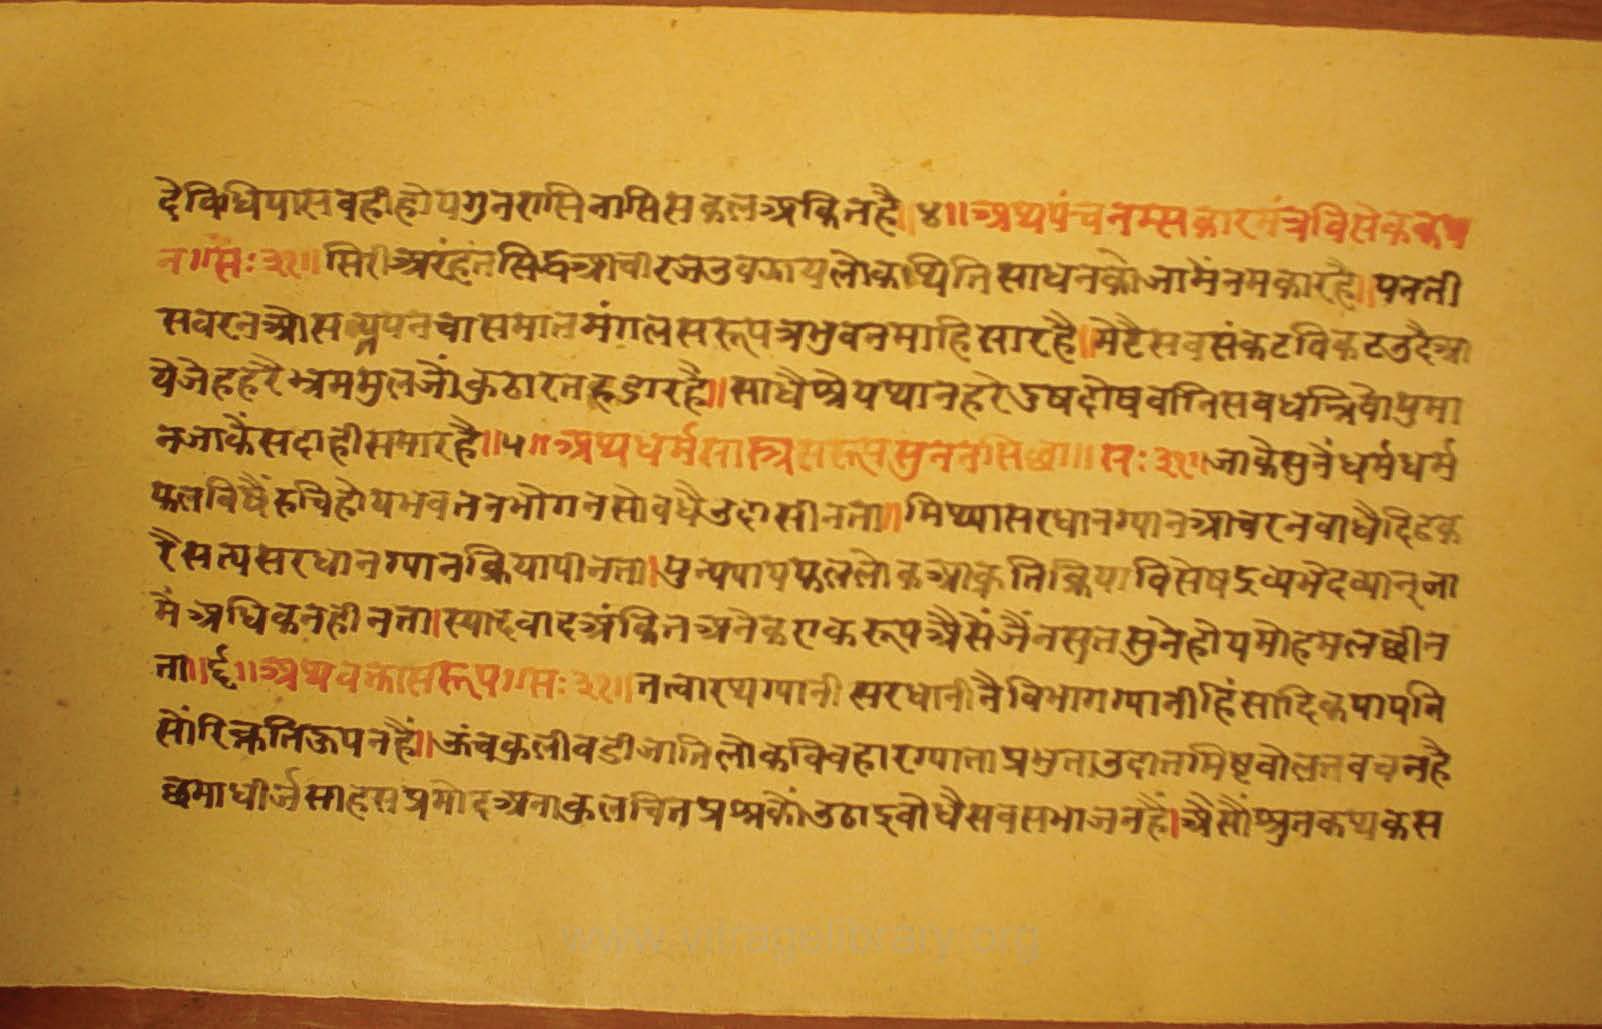 देविधिपासवहीहोयगुनरासिनासिसकलअकितहै॥४॥अथपंचनमस्कारमंत्रविसेकक
न॥सः३१॥सिरीअरंहंतसिद्धआचारजउवझायलोकाथितिसाधनकोजामेनमकारहै॥पनती
सवरनऔसत्पूपनचासमातमंगलसरूपत्रभुवनमाहिसारहै॥मेटैसवसंकटविकटतुदैआ
येजेहहरैभ्रममुलजौंकुठारतरुडारहै॥साधैश्रेयथानहरेदुषदोषवानिसवधन्निवोपुमा
नजाकैंसदाहीसमारहै॥५॥अथधर्मसास्त्रसरूपसुननसिष्या॥सः३१॥जाकैसुनैंधर्मधर्म
फलविषैंरुचिहोयभवतनभोगनसोवधैउदासीनता॥मिथ्यासरधानग्यानआचरनवाधैदिढक
रैसत्यसरधानग्यानक्रियापीनता।पुन्यपापफललोकआक्रतिक्रियाविसेषद्रव्यभेदव्यानजा
मैंअधिकनहीनता।स्यादवादअंकितअनेकएकरूपअैसेंजैंनसुतसुनेहोयमोहमलछीन
ता॥६॥अथवक्तासरूप॥सः३१॥तत्वारथग्यानीसरधानीनैविभागग्यानीहिंसादिकपापनि
सौंरिक्रतिऊपनहैं॥ऊंचकुलीवडीजातिलोकविवहारग्याताप्रभुताउदातमिष्टवोलतवचनहै
छमाधीर्जसाहसप्रमोदअनाकुलचितप्रश्नकौंउठाइवोधैसवसभाजनहैं।अैसौंश्रुतकथकस
www.vitragelibrary.org